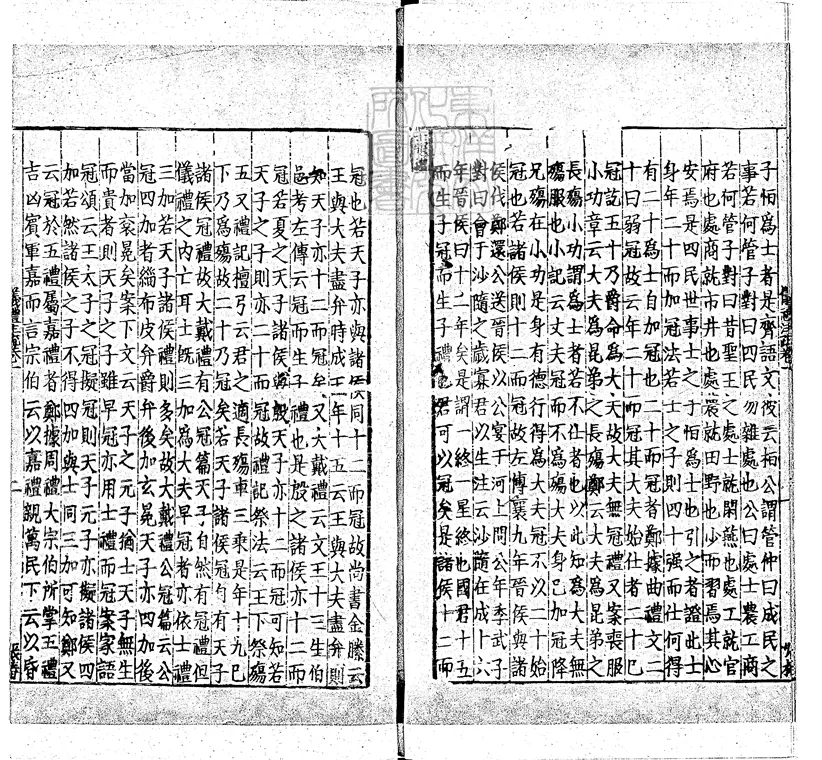 子怕為士者是齊語文彼云桓公謂管仲曰成民之
事若何管子對曰四民勿雜處也公曰處士農工商
若何管子對曰昔聖王之處士就閑燕也處工就官
府也處商就市井也處農就田野也少而習焉其心
安焉是四民世事士之子怕為士也引之者證此士
身年二十而加冠法若士之子則四十强而仕何得
有二十為士自加冠也二十而冠者鄭據曲禮文二
十曰弱冠故云年二十而冠其大夫始仕者二十已
冠訖五十乃爵命為大夫故大夫無冠禮又案喪服
小功章云大夫為昆弟之長殤鄭云大夫為昆弟之
長殤小功謂為士者若不仕者也以此知為大夫無
殤服也小記云丈夫冠而不為殤大夫身已加冠降
兄殤在小功是身有德行得為大夫冠不以二十始
冠也若諸侯則十二而冠故左傳襄九年晉侯與諸
侯伐鄭還公送晉侯以公宴于河上問公年季武子
對曰會于沙隨之歲寡君以生注云沙隨在成十六
年晉侯曰十二年矣是謂一終一星終也國君十五
而生子冠而生子禮也君可以冠矣是諸侯十二而
冠也若天子亦與諸侯同十二而冠故尚書金縢云
王與大夫盡弁時成王年十五云王與大夫盡弁則
知天子亦十二而冠矣又大戴禮云文王十三生伯
邑考左傳云冠而生子禮也是殷之諸侯亦十二而
冠若夏之天子諸侯與殷天子亦十二而冠可知若
天子之子則亦二十而冠故禮記祭法云王下祭殤
五又禮記檀弓云君之適長殤車三乘是年十九已
下乃為殤故二十乃冠矣若天子諸侯冠自有天子
諸侯冠禮故大戴禮有公冠篇天子自然有冠禮但
儀禮之內亡耳士既三加為大夫早冠者亦依士禮
三加若天子諸侯禮則多矣故大戴禮公冠篇云公
冠四加者緇布皮弁爵弁後加玄冕天子亦四加後
當加衮冕矣案下文云天子之元子猶士天子無生
而貴者則天子之子雖早冠亦用士禮而冠案家語
冠頌云王太子之冠擬冠則天子元子亦擬諸侯四
加若然諸侯之子不得四加與士同三加可知鄭又
云冠於五禮屬嘉禮者鄭據周禮大宗伯所掌五禮
吉凶賓軍嘉而言宗伯云以嘉禮親萬民下云以昏